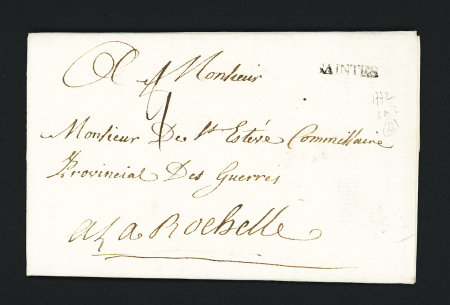 A Monsieur
SAINTES
1772
4
Monsieur De St Estéve Commissaire
Provincial Des Guerres
a La Rochelle